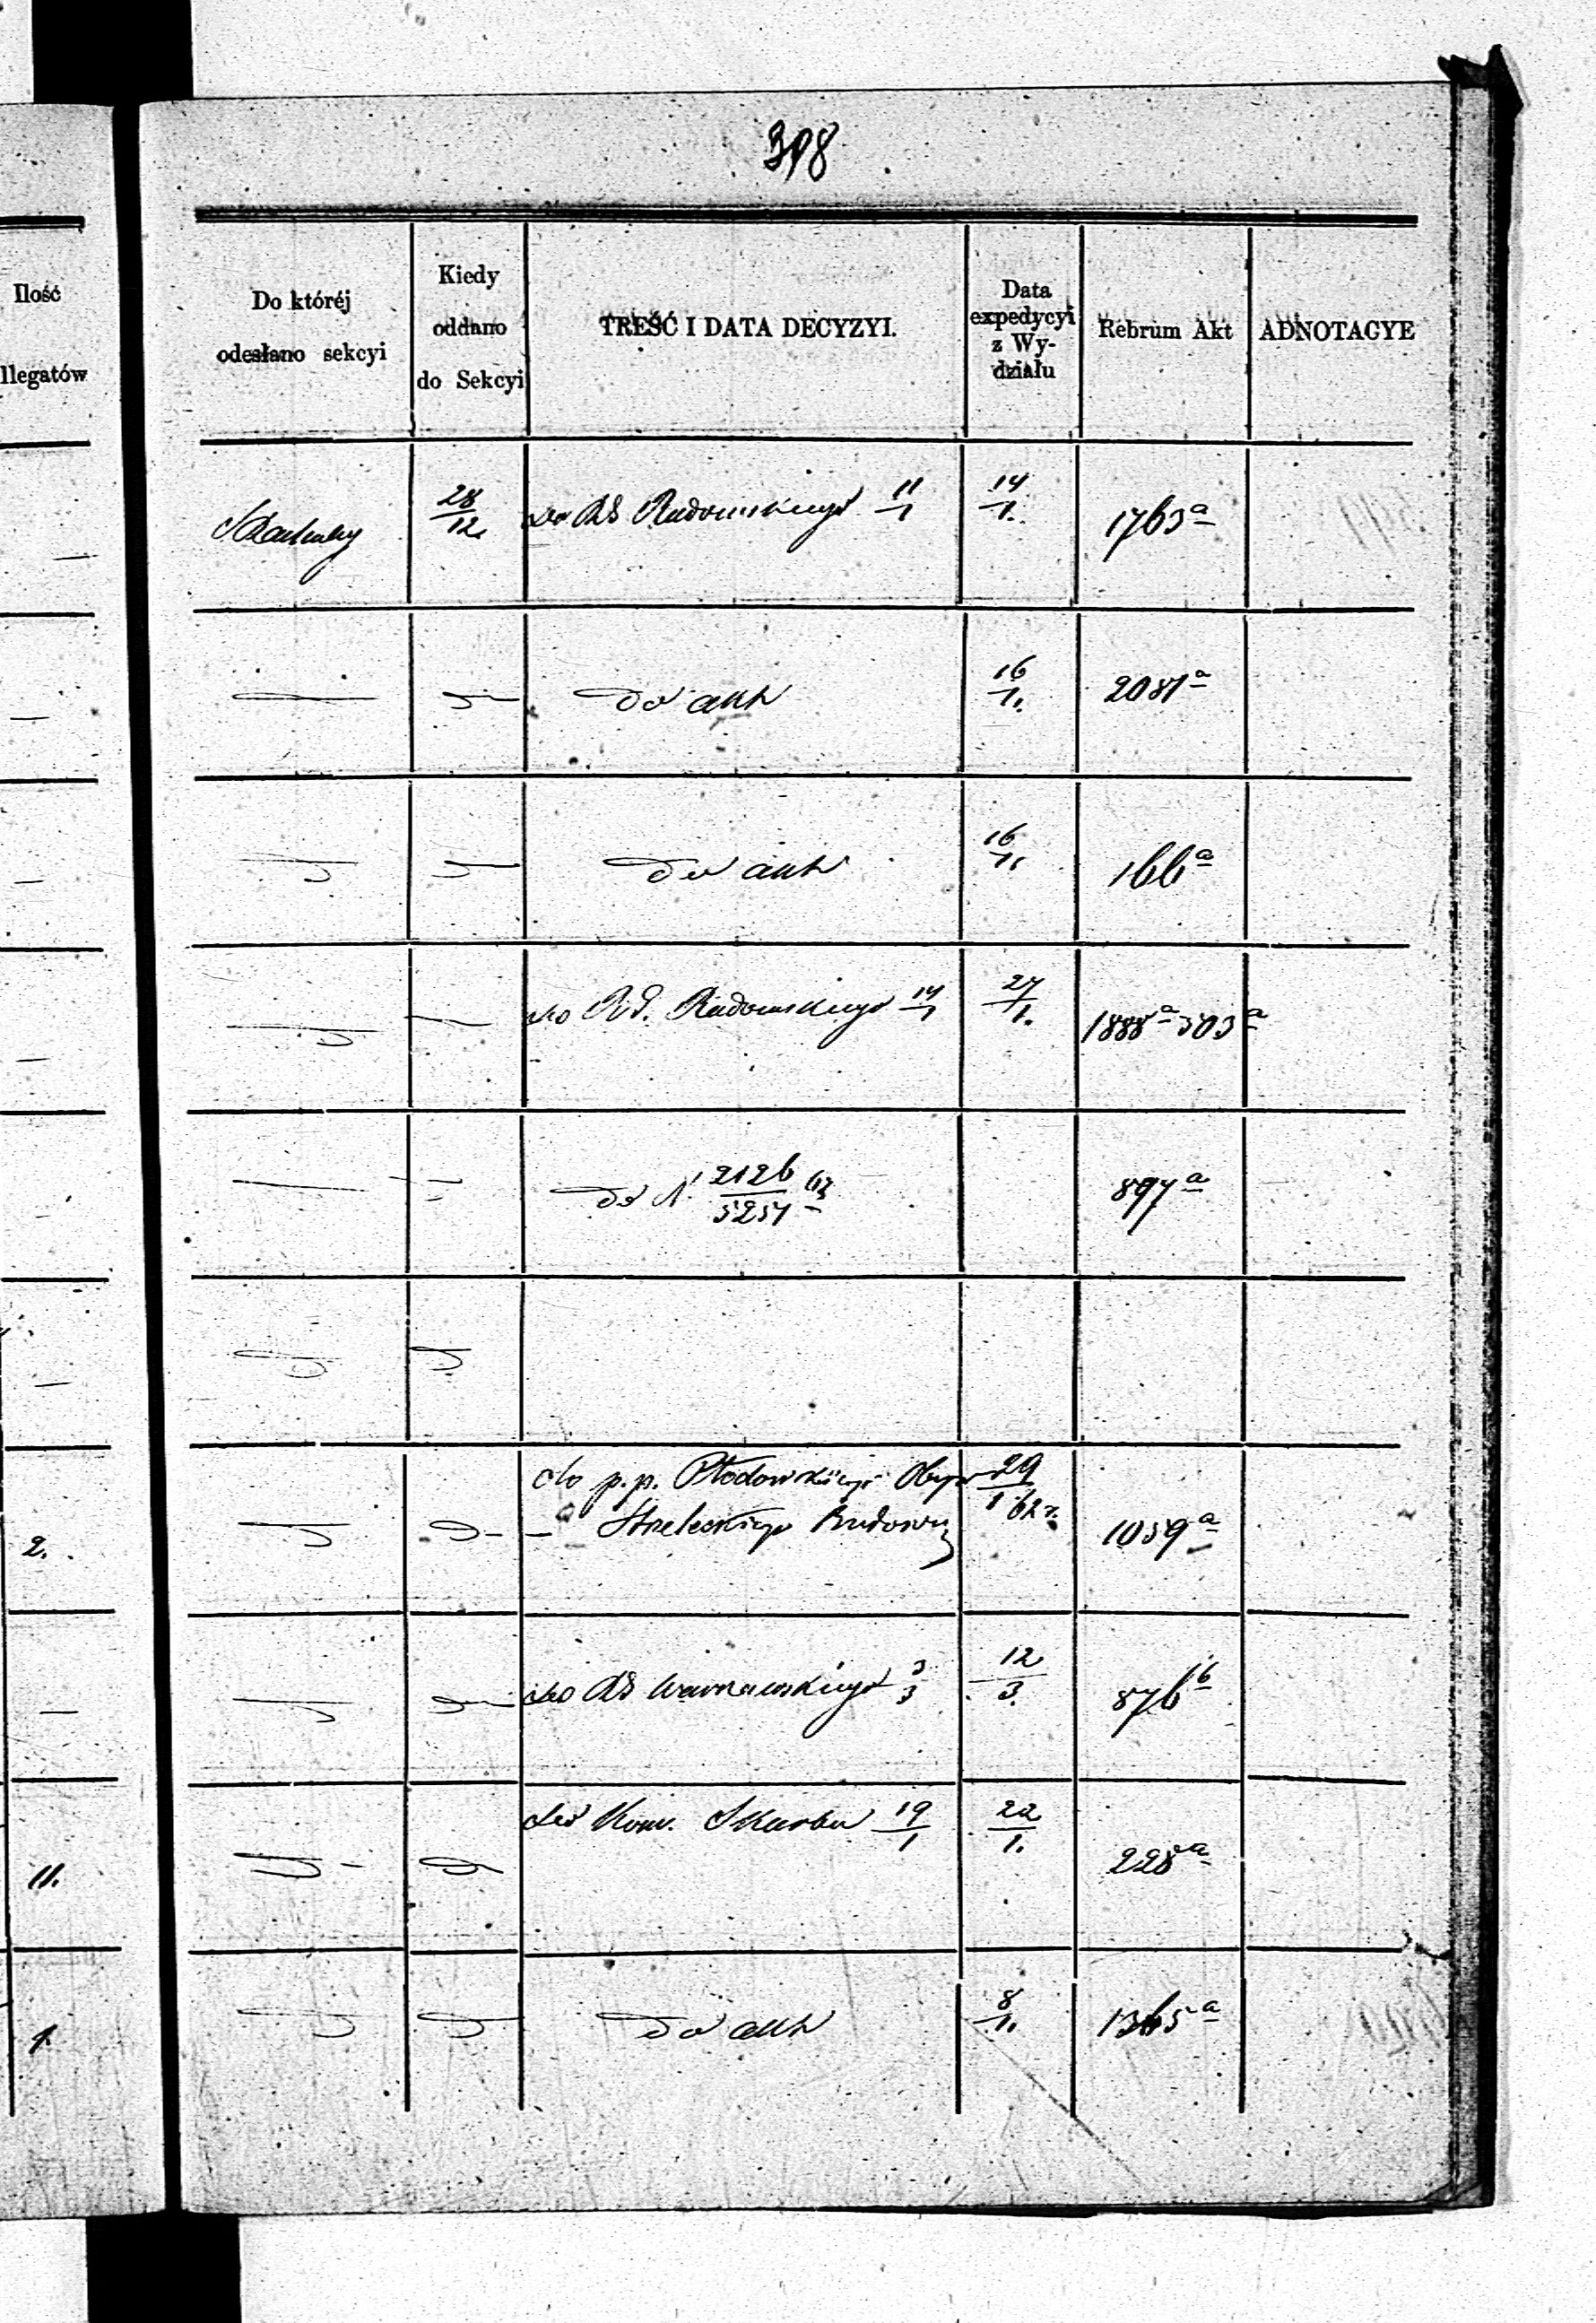 398
Ilość
llegatów
Do któréj
odesłano sekcyi
Kiedy
oddano
do Sekcyi
TREŚĆ I DATA DECYZYI.
Data
expedycyi
z Wy-
działu
Rebrum Akt
ADNOTACYE
28/12 do RG Radomskiego 11/1 14/1. 1763 a
do akt 16/1. 2081 a
do akt 16/1. 166 a
do RG. Radomskiego 14/1 27/1. 1888 a 503 a
do N. 2126/5251 897 a
do p.p. Obyw 29/1 62 r.
2. Strzeleckiego Budown 1059 a
do RG Warszawskiego 3/3 12/3. 876 b
do Kom. Skarbu 19/1 22/1.
11. 228 a
1. do akt 8/1. 1365 a